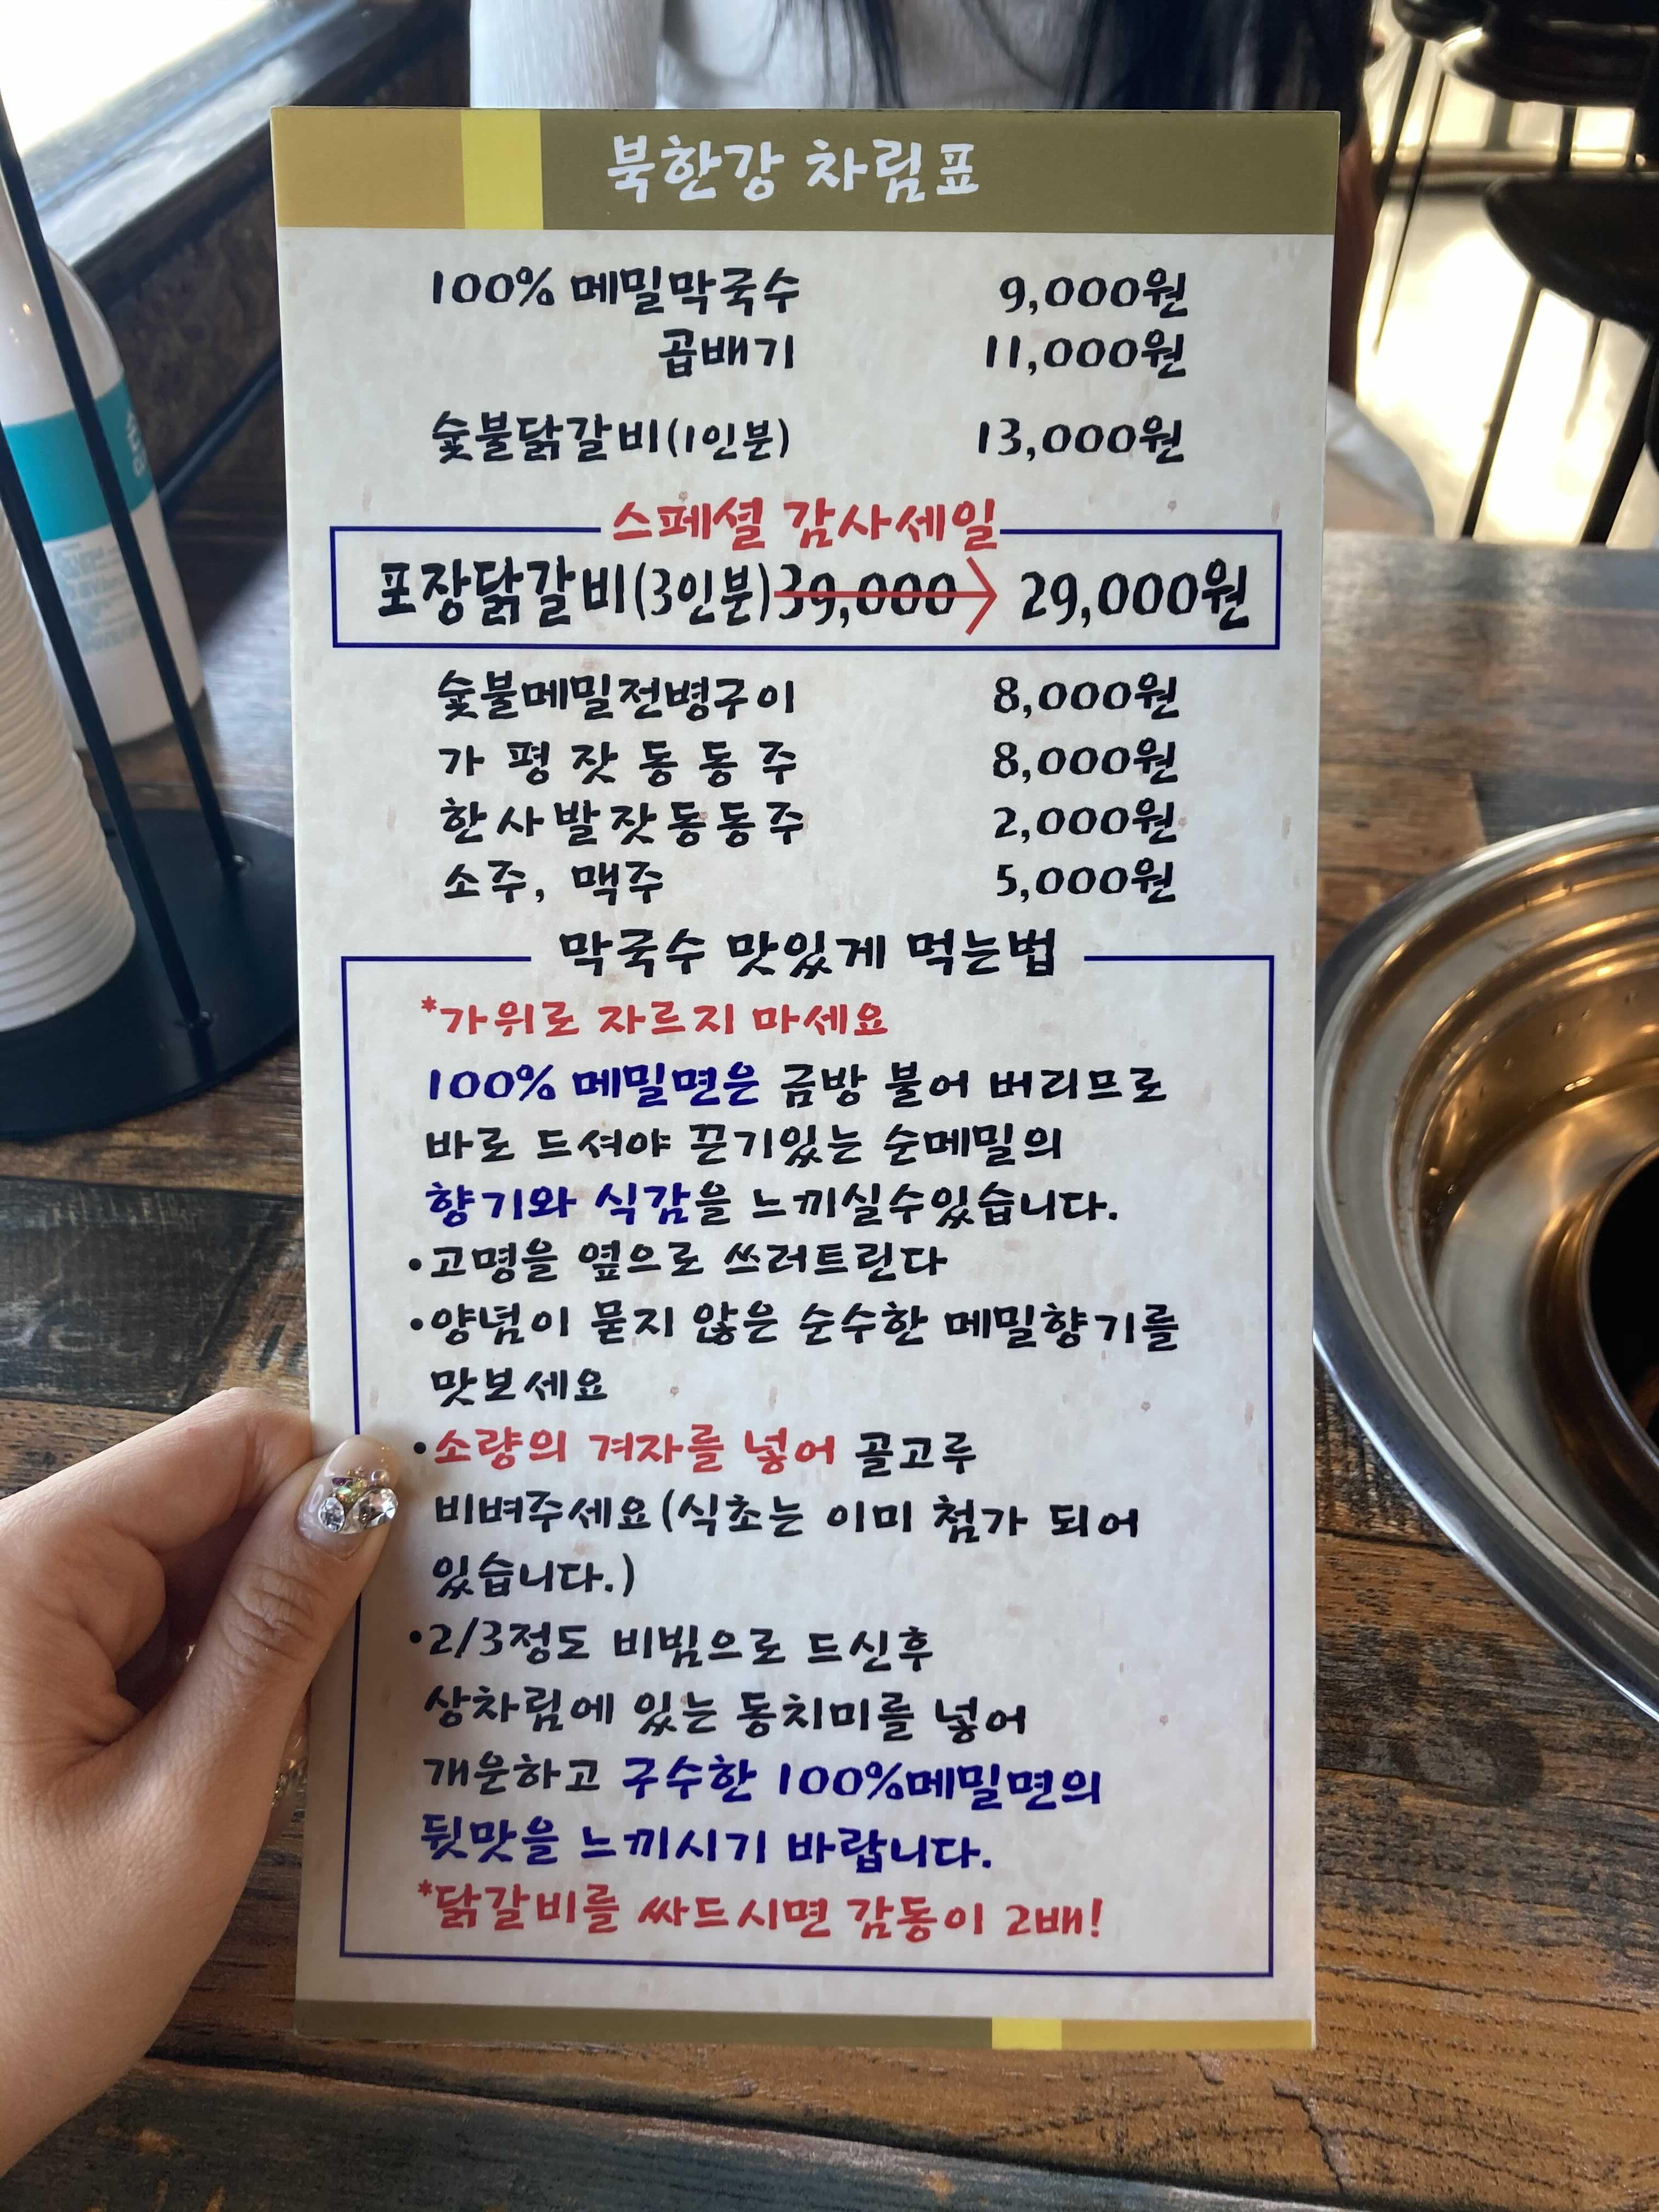 북한강 차림표
100% 메밀막국수 9,000원
곱배기 11,000원
숯불닭갈비(1인분) 13,000원
스페셜 감사세일
포장닭갈비(3인분) 39,000 29,000원
숯불메밀전병구이 8,000원
가 평 잣 동 동 주 8,000원
한사발잣동동주 2,000원
소주, 맥주 5,000원
막국수 맛있게 먹는법
*가위로 자르지 마세요
100% 메밀면은 금방 불어 버리므로
바로 드셔야 끈기있는 순메밀의
향기와 식감을 느끼실수있습니다.
•고명을 옆으로 쓰러트린다
•양념이 묻지 않은 순수한 메밀향기를
맛보세요
•소량의 겨자를 넣어 골고루
비벼주세요(식초는 이미 첨가 되어
있습니다.)
•2/3정도 비빔으로 드신후
상차림에 있는 동치미를 넣어
개운하고 구수한 100%메밀면의
뒷맛을 느끼시기 바랍니다.
*닭갈비를 싸드시면 감동이 2배!